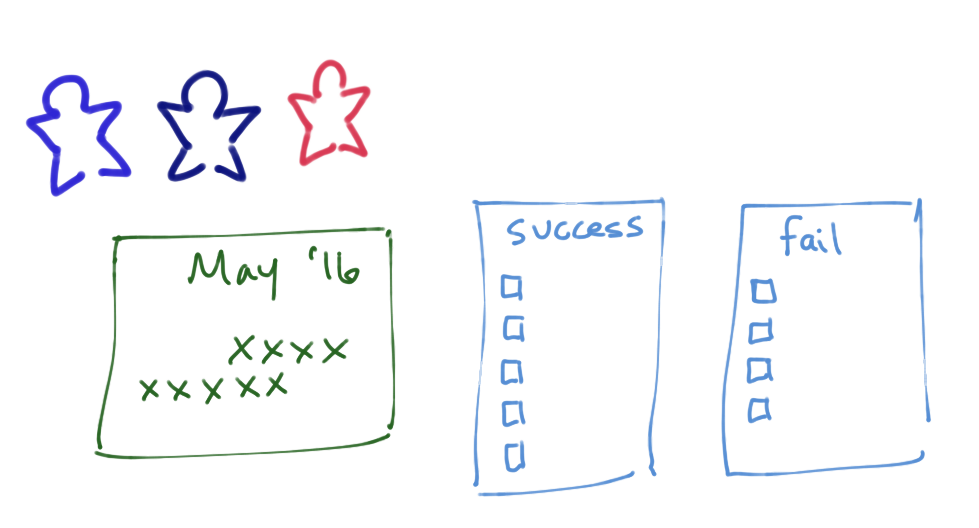 May '16
xxxx
xxxxx
success
fail